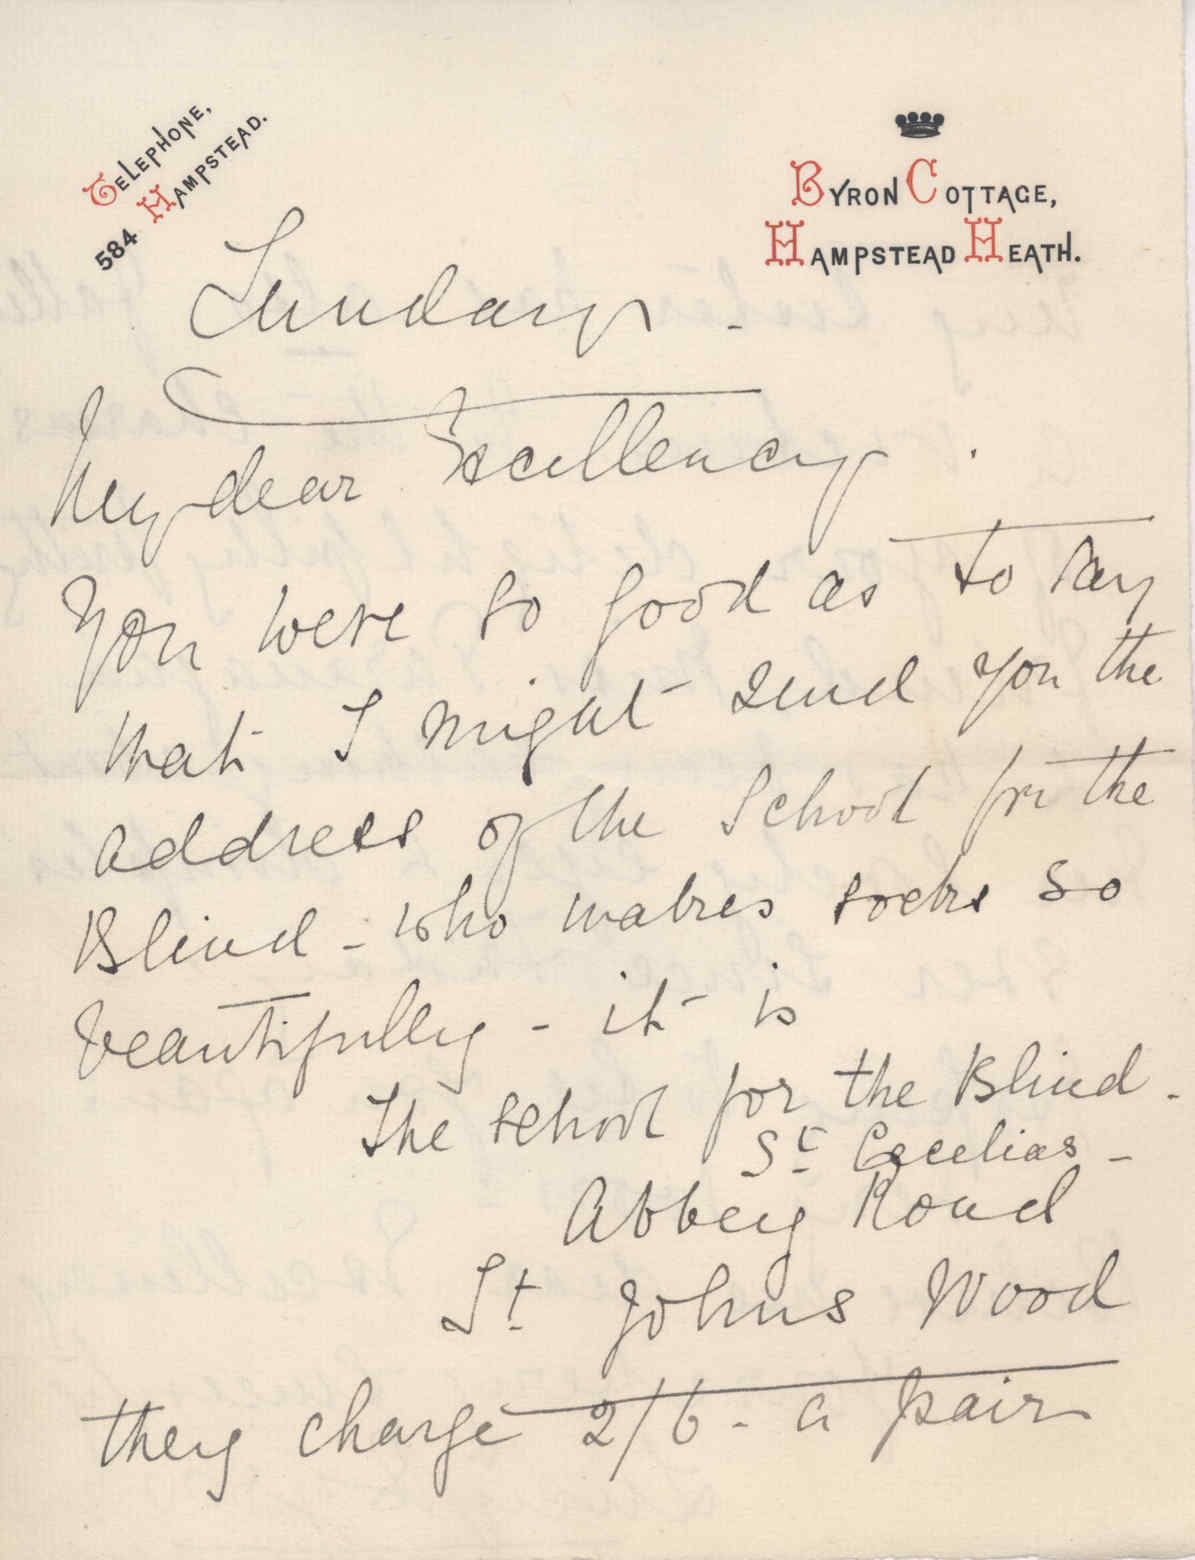 TELEPHONE,
584 HAMPSTEAD.
BYRON COTTAGE,
HAMPSTEAD HEATH.
Sunday -
My dear Excellency.
You were so good as to say
that I might send you the
address of the School for the
Blind - who makes socks so
beautifully - it is
The school for the Blind -
St Cecelias -
Abbey Road
St Johns Wood
they charge 2/6 - a pair